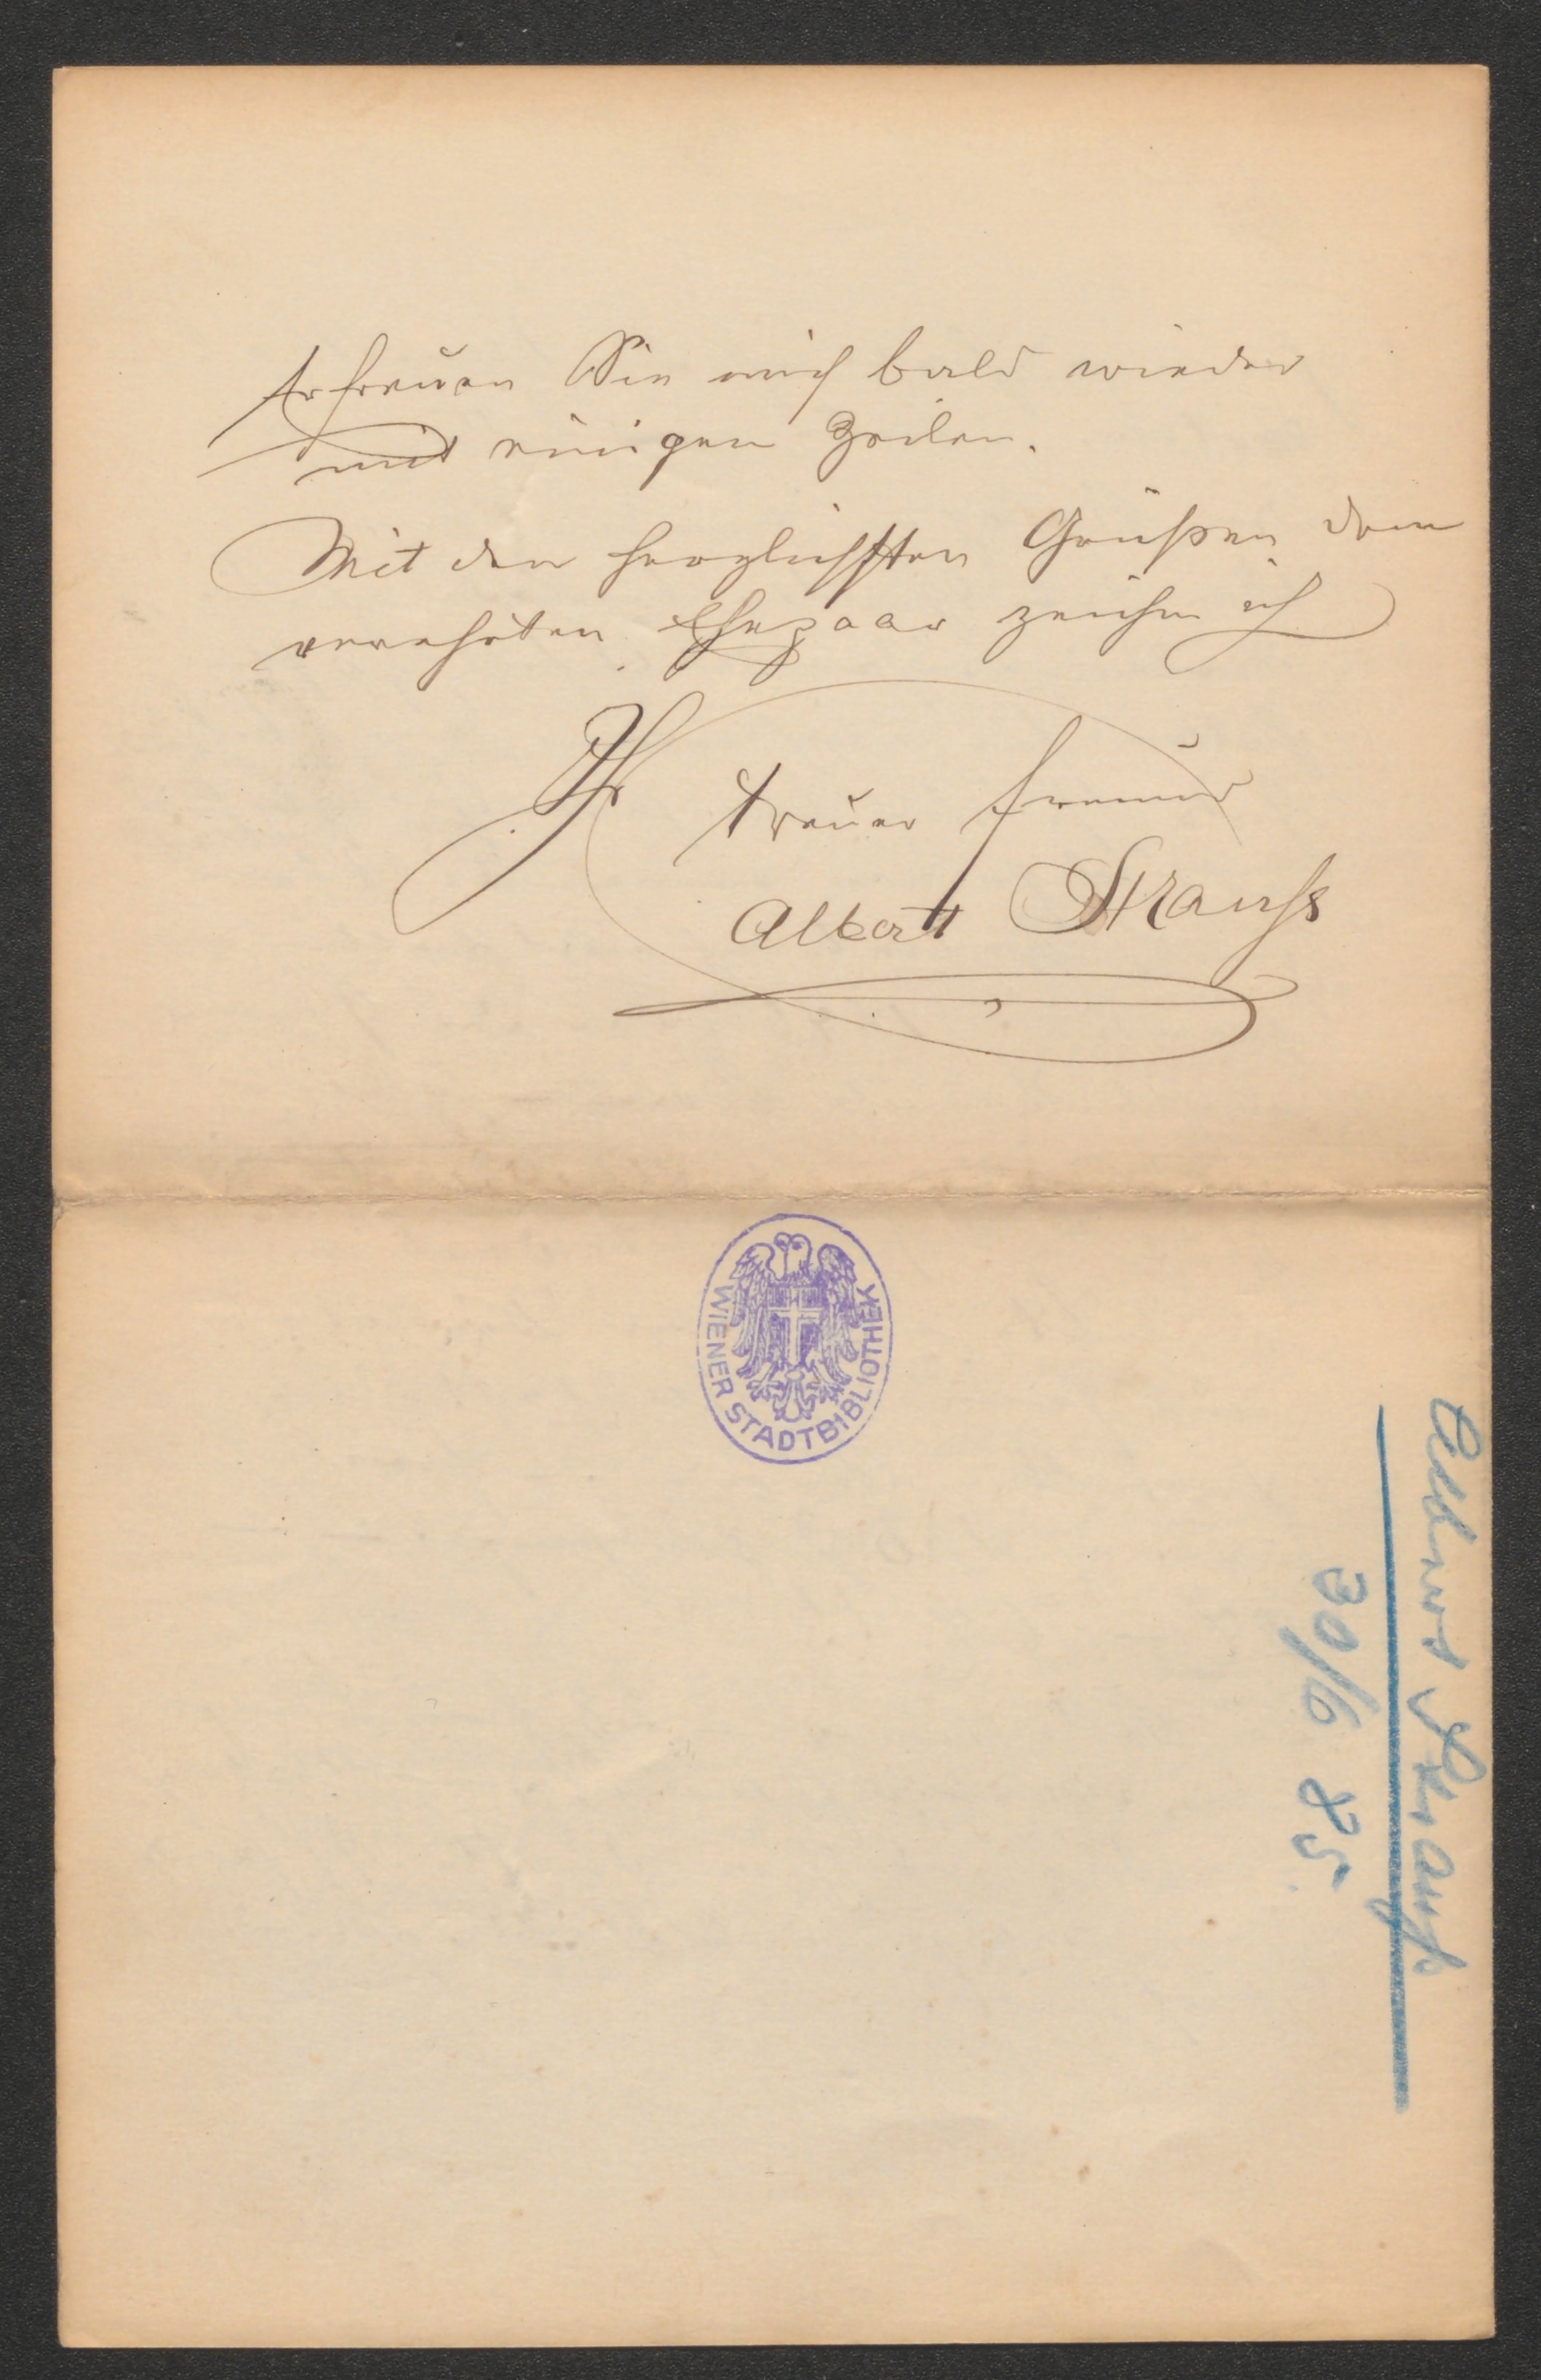 Erfreuen Sie mich bald wieder
mit einigen Zeilen.
Mit den herzlichsten Grüßen dem
verehrten Ehepaar zeichne ich
Ihr treuer Freund
Albert Strauss
WIENER STADTBIBLIOTHEK
Albert Strauß
30/6 85.